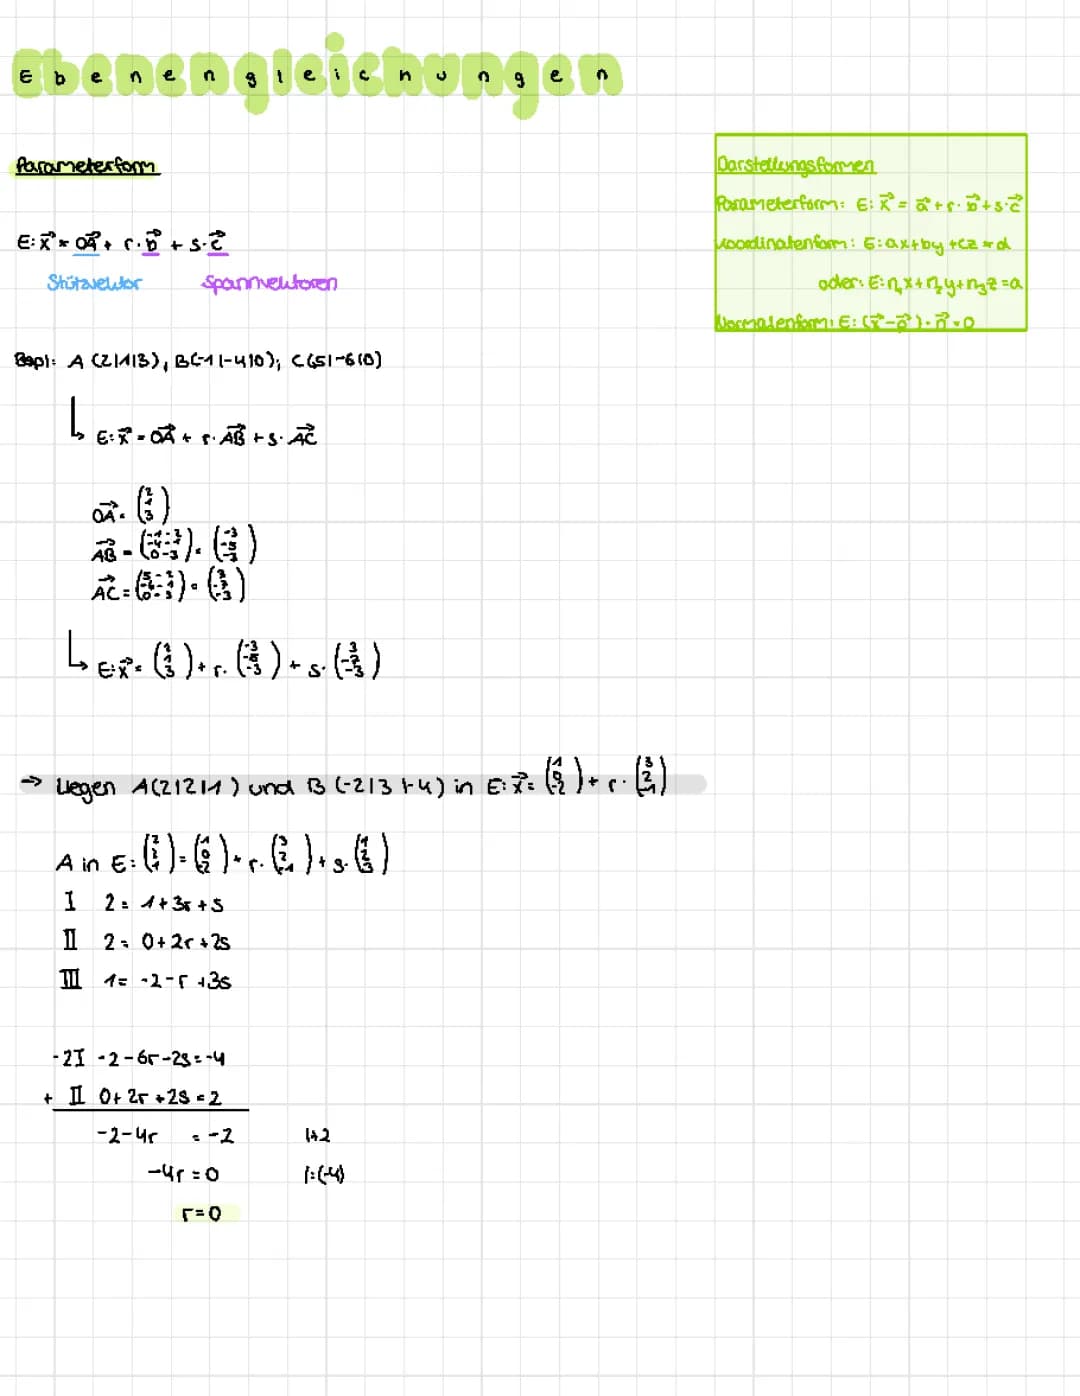 Ebenengleichungen
Parameterform
E: x⃗ = OA⃗ + r · b⃗ + s · c⃗
Stützvektor Spannvektoren
Darstellungsformen
Parameterform: E: x⃗ = a⃗ + r · b⃗ + s · c⃗
Koordinatenform: E: ax + by + cz = d
oder: E: n₁x + n₂y + n₃z = a
Normalenform: E: (x⃗ - p⃗) · n⃗ = 0
Bspl: A (2|1|3), B(-1|-4|0); C(5|-6|0)
E: x⃗ = OA⃗ + r · AB⃗ + s · AC⃗
OA⃗ = (2 1 3)
AB⃗ = (-1-2 -4-1 0-3) = (-3 -5 -3)
AC⃗ = (5-2 -6-1 0-3) = (3 -7 -3)
E: x⃗ = (2 1 3) + r · (-3 -5 -3) + s · (3 -7 -3)
→ Liegen A(2|2|1) und B (-2|3|-4) in E: x⃗ = (1 0 -2) + r · (3 2 -1)
A in E: (2 2 1) = (1 0 -2) + r · (3 2 -1) + s · (1 2 3)
I 2 = 1 + 3r + s
II 2 = 0 + 2r + 2s
III 1 = -2 - r + 3s
-2I -2 - 6r - 2s = -4
+ II 0 + 2r + 2s = 2
-2 - 4r = -2 |+2
-4r = 0 |:(-4)
r = 0